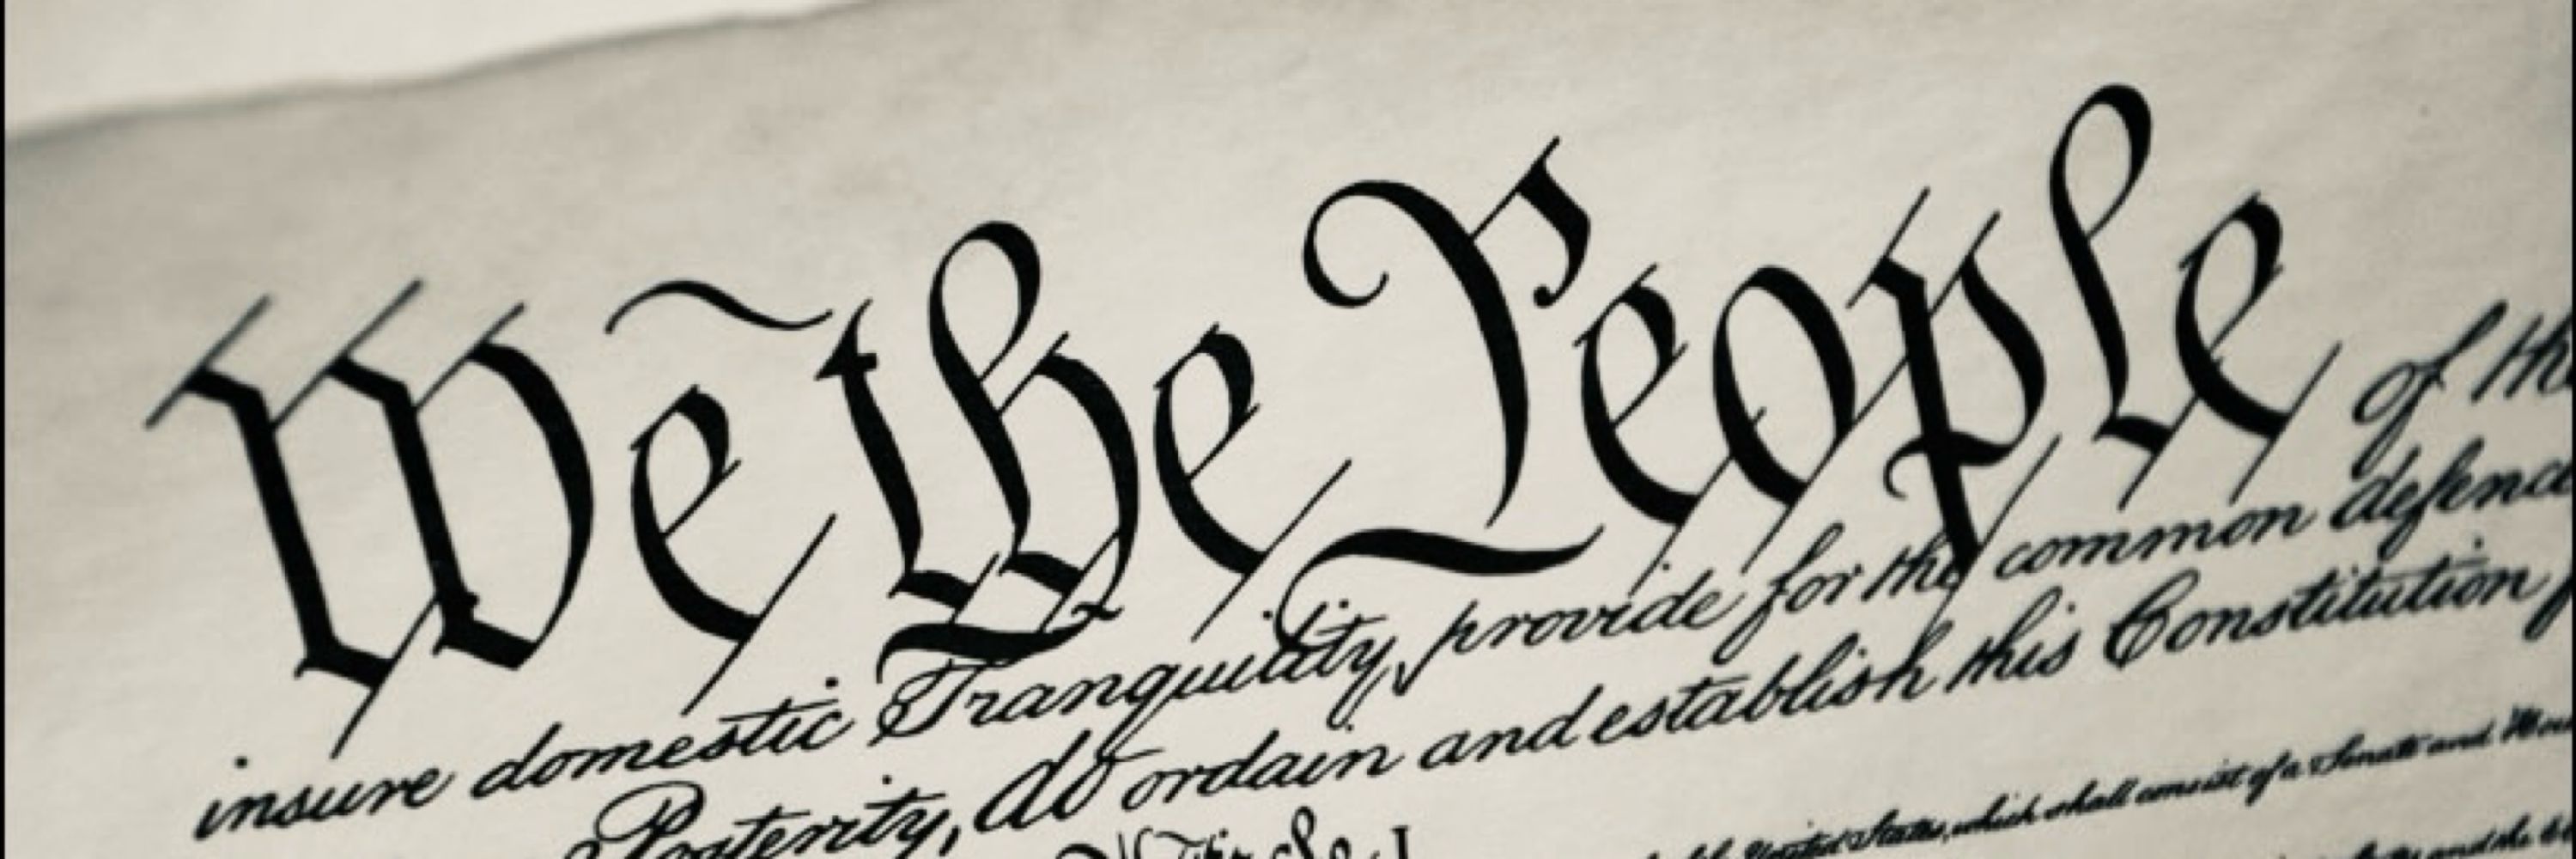 We the People of the
insure domestic Tranquility, provide for the common defence
Posterity, do ordain and establish this Constitution
United States, which shall consist of a Senate and
and the